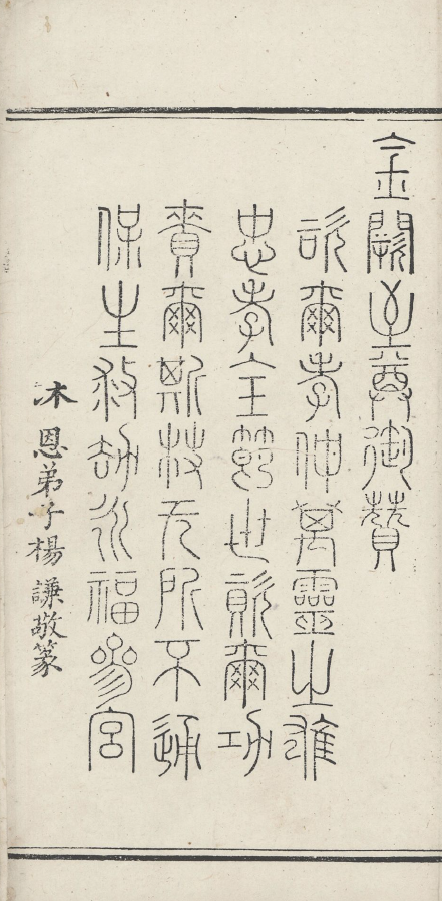 金闕至尊御贊
爾孝仲萬靈之雄
忠孝全節世爾功
賚爾斯技无所不通
保生救劫永福參宮
沐恩弟子楊謙敬篆